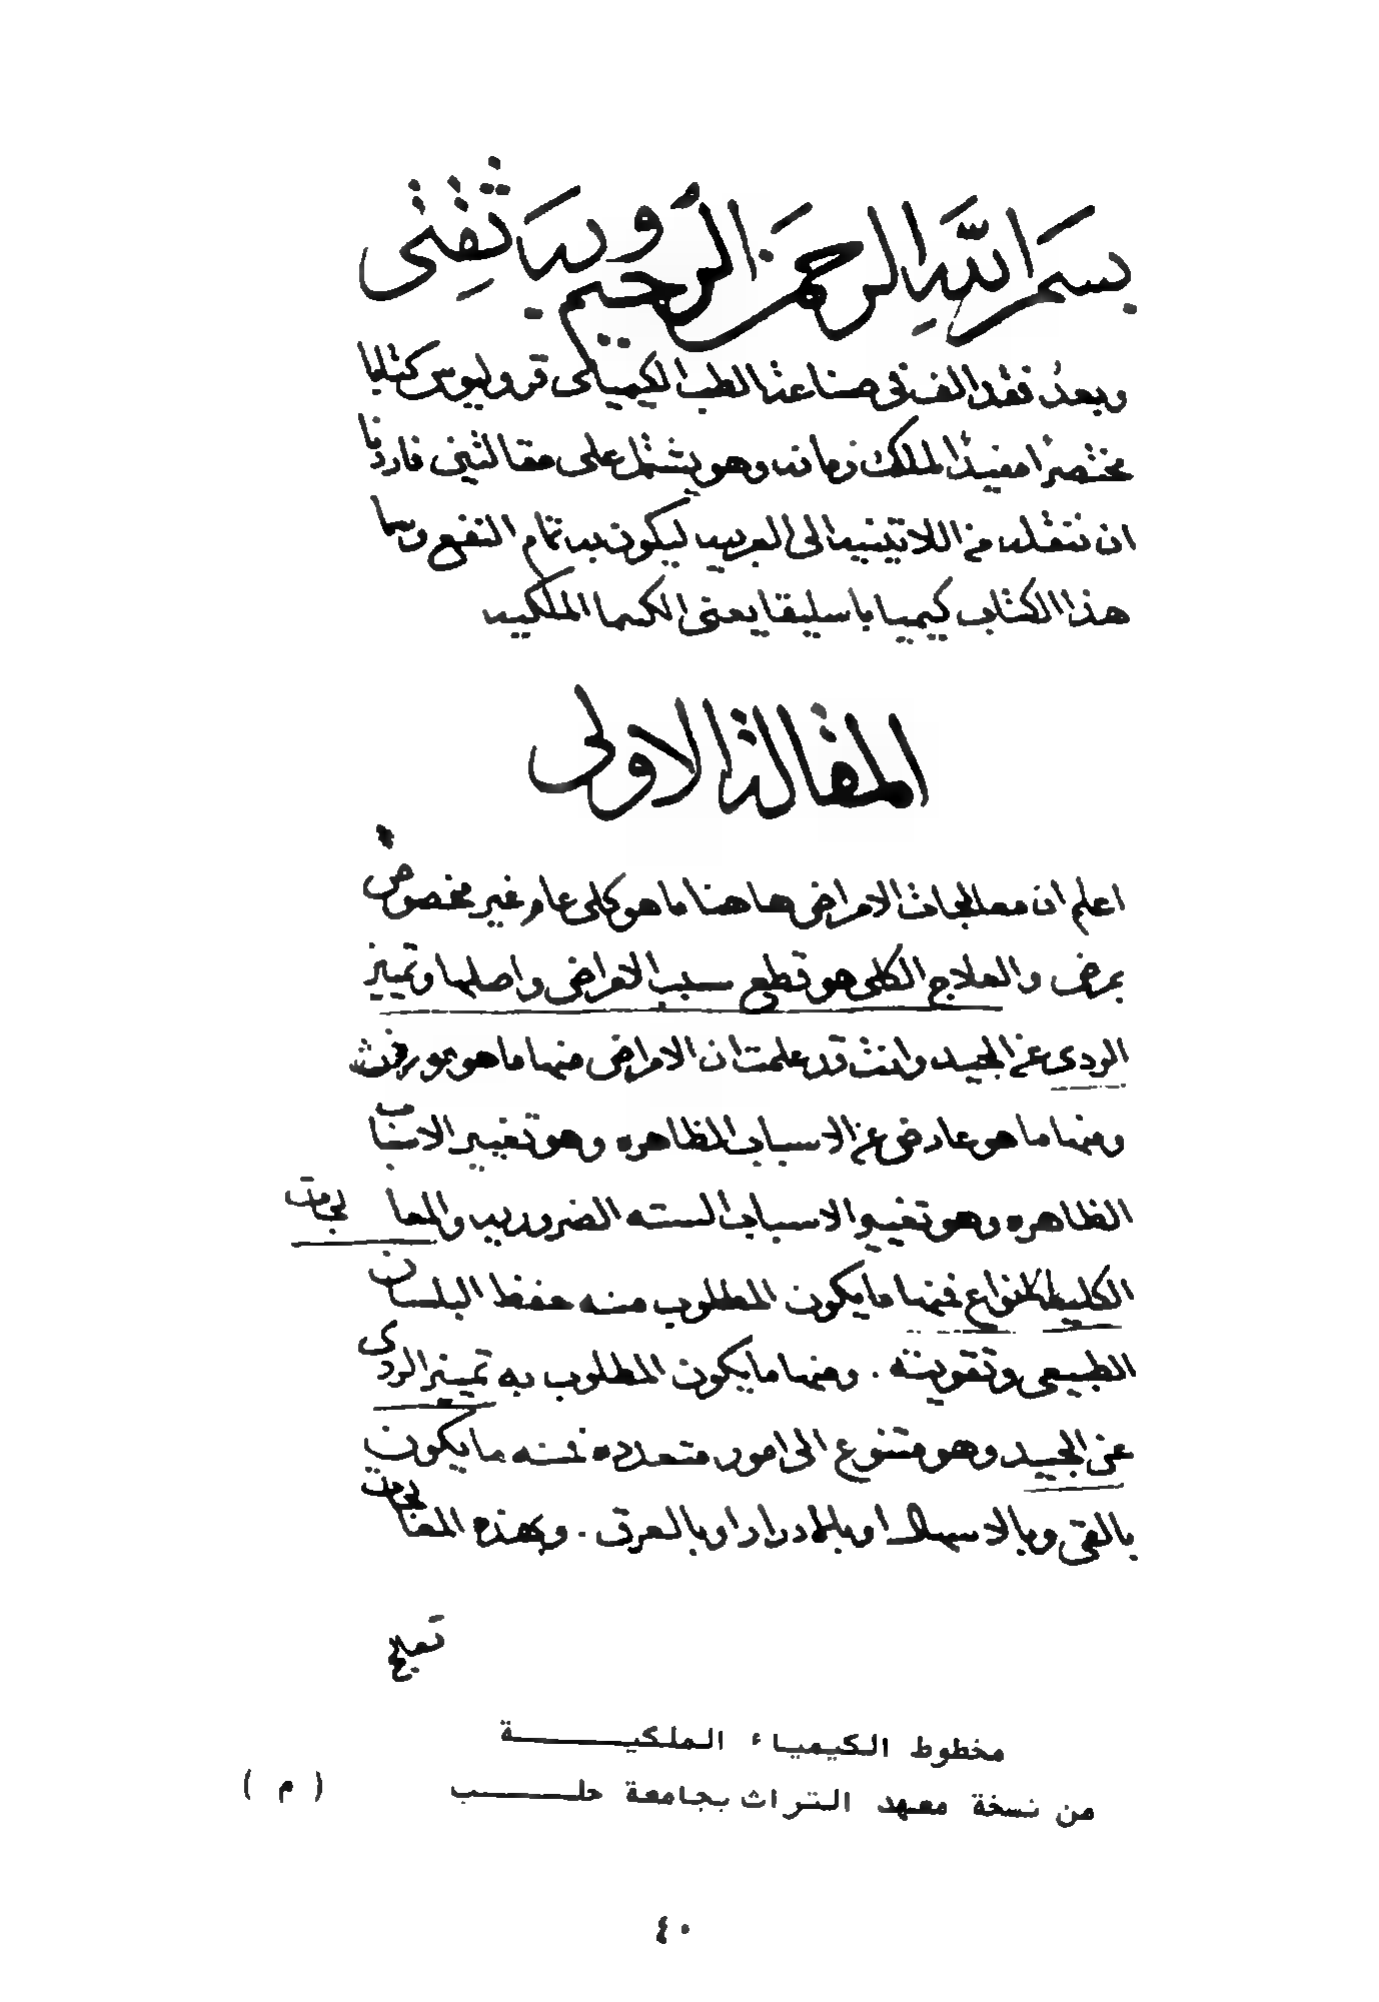 بسم الله الرحمن الرحيم وبه ثقتى
وبعد فقد الف فى صناعة الطب الكيمياى قروليوس كتابا
مختصرا مفيدا لملك زمانه وهو يشتمل على مقالتين فاردنا
ان ننقله من اللاتينيه الى العربيه ليكون به تمام النفع وسما
هذا الكتاب كيميا باسليقا يعنى الكيما الملكيه
المقالة الاولى
اعلم ان معالجات الامراض هاهنا ما هو كلى عام غير مخصوص
بمرض والعلاج الكلى هو قطع سبب الامراض واصلها وتمييز
الردى عن الجيد وانت قد علمت ان الامراض منها ما هو موروث
ومنها ما هو عارض عن الاسباب الظاهره وهو تغيير الاسباب
الظاهره وهو تغيير الاسباب السته الضروريه والمعالجات
الكليه انواع فمنها ما يكون المطلوب منه حفظ البلسان
الطبيعى وتقويته . ومنها ما يكون المطلوب به تمييز الردى
عن الجيد وهو متنوع الى امور متعدده فمنه ما يكون
بالقى وبالاسهال او بالادرار او بالعرق . وهذه المعالجات
تعالج
مخطوط الكيمياء الملكيـــــــة
من نسخة معهد التراث بجامعة حلـــــب ( م )
٤٠